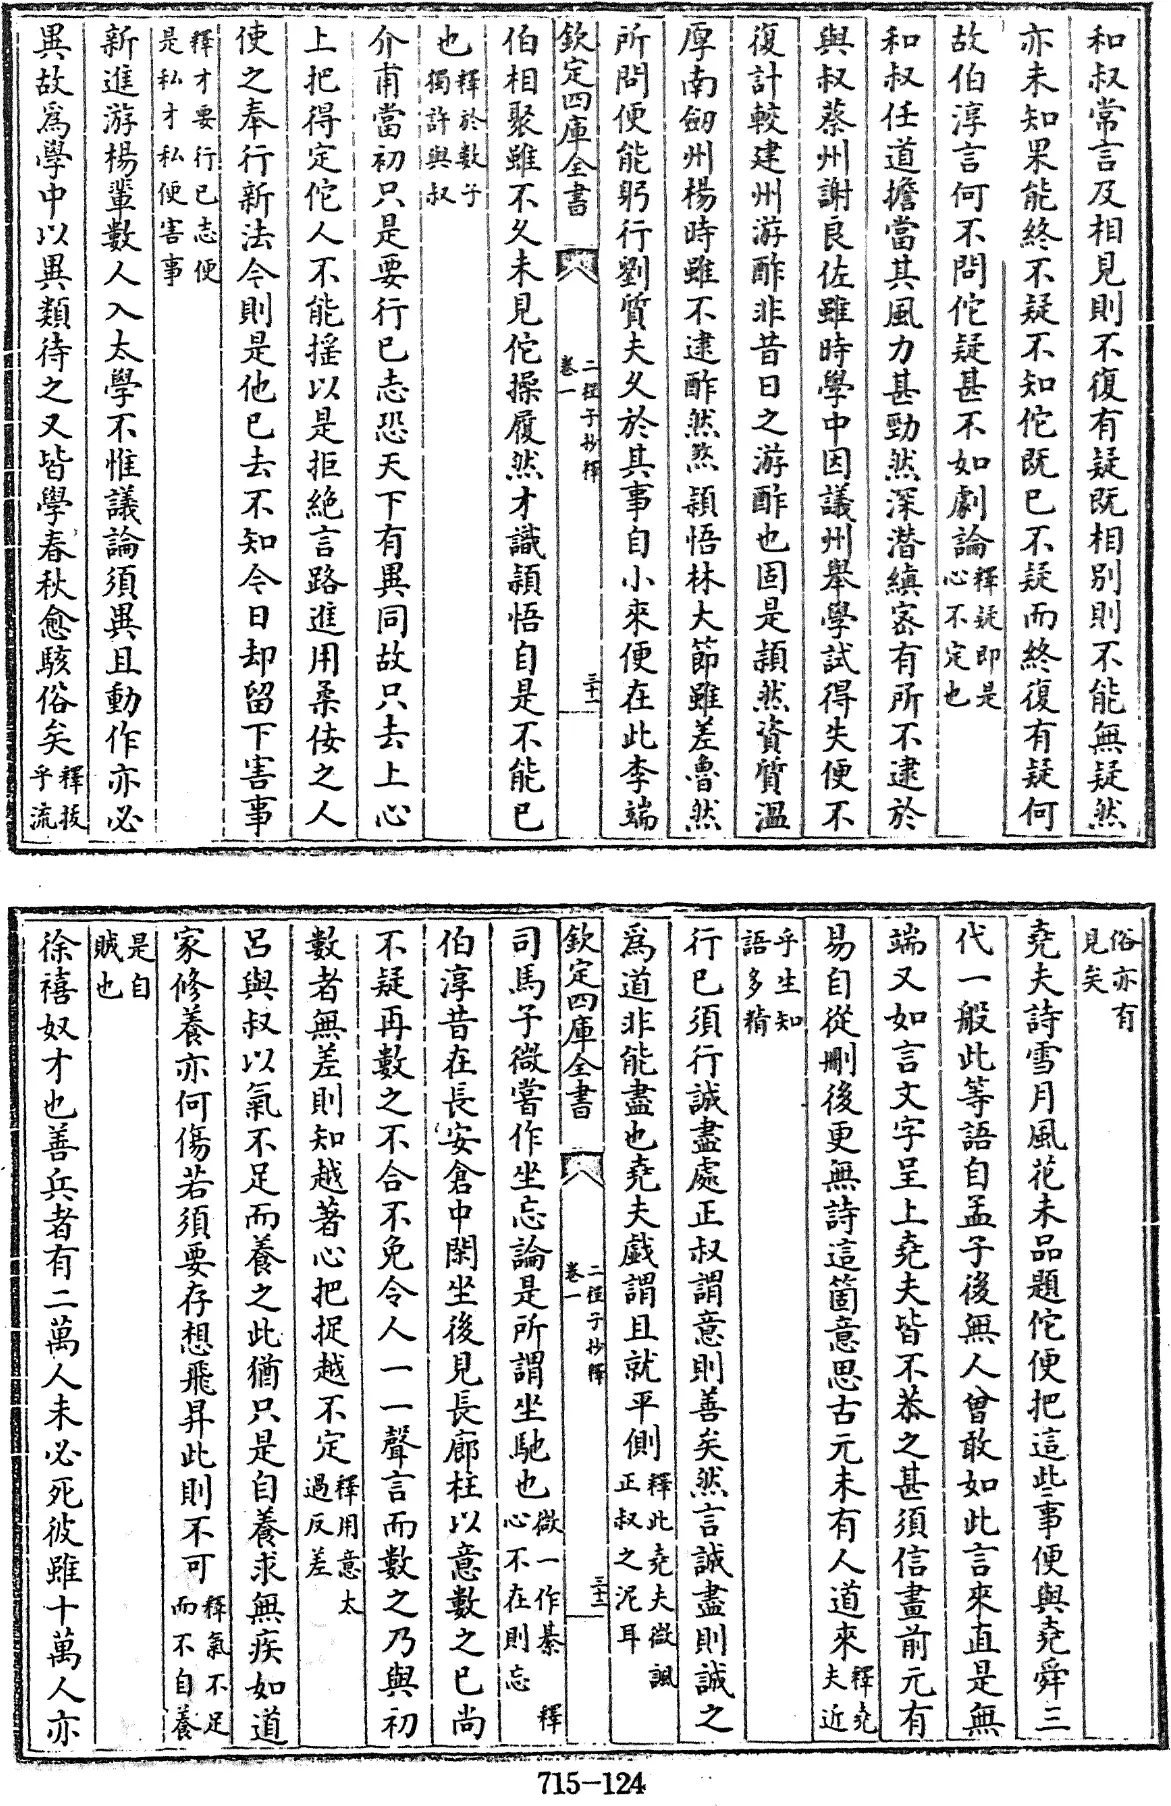 和叔常言及相見則不復有疑既相別則不能無疑然
亦未知果能終不疑不知佗既已不疑而終復有疑何
故伯淳言何不問佗疑甚不如劇論釋疑即是心不定也
和叔任道擔當其風力甚勁然深潛縝宻有所不逮於
與叔蔡州謝良佐雖時學中因議州舉學試得失便不
復計較建州游酢非昔日之游酢也固是頴然資質溫
厚南劒州楊時雖不逮酢然煞頴悟林大節雖差魯然
所問便能躬行劉質夫久於其事自小來便在此李端
欽定四庫全書
二程子抄釋
卷一
三十一
伯相聚雖不久未見佗操履然才識頴悟自是不能已
也釋於數子獨許與叔
介甫當初只是要行已志恐天下有異同故只去上心
上把得定佗人不能揺以是拒絶言路進用柔佞之人
使之奉行新法今則是他已去不知今日却留下害事
釋才要行已志便是私才私便害事
新進游楊輩數人入太學不惟議論須異且動作亦必
異故為學中以異類待之又皆學春秋愈駭俗矣釋拔乎流
俗亦有見矣
堯夫詩雪月風花未品題佗便把這些事便與堯舜三
代一般此等語自孟子後無人曾敢如此言來直是無
端又如言文字呈上堯夫皆不恭之甚須信畫前元有
易自從刪後更無詩這箇意思古元未有人道來釋堯夫近
乎生知語多精
行已須行誠盡處正叔謂意則善矣然言誠盡則誠之
為道非能盡也堯夫戯謂且就平側釋此堯夫微諷正叔之泥耳
欽定四庫全書
二程子抄釋
卷一
三十二
司馬子微嘗作坐忘論是所謂坐馳也微一作綦 釋心不在則忘
伯淳昔在長安倉中閑坐後見長廊柱以意數之已尚
不疑再數之不合不免令人一一聲言而數之乃與初
數者無差則知越著心把捉越不定釋用意太過反差
呂與叔以氣不足而養之此猶只是自養求無疾如道
家修養亦何傷若須要存想飛昇此則不可釋氣不足而不自養
是自賊也
徐禧奴才也善兵者有二萬人未必死彼雖十萬人亦
715-124